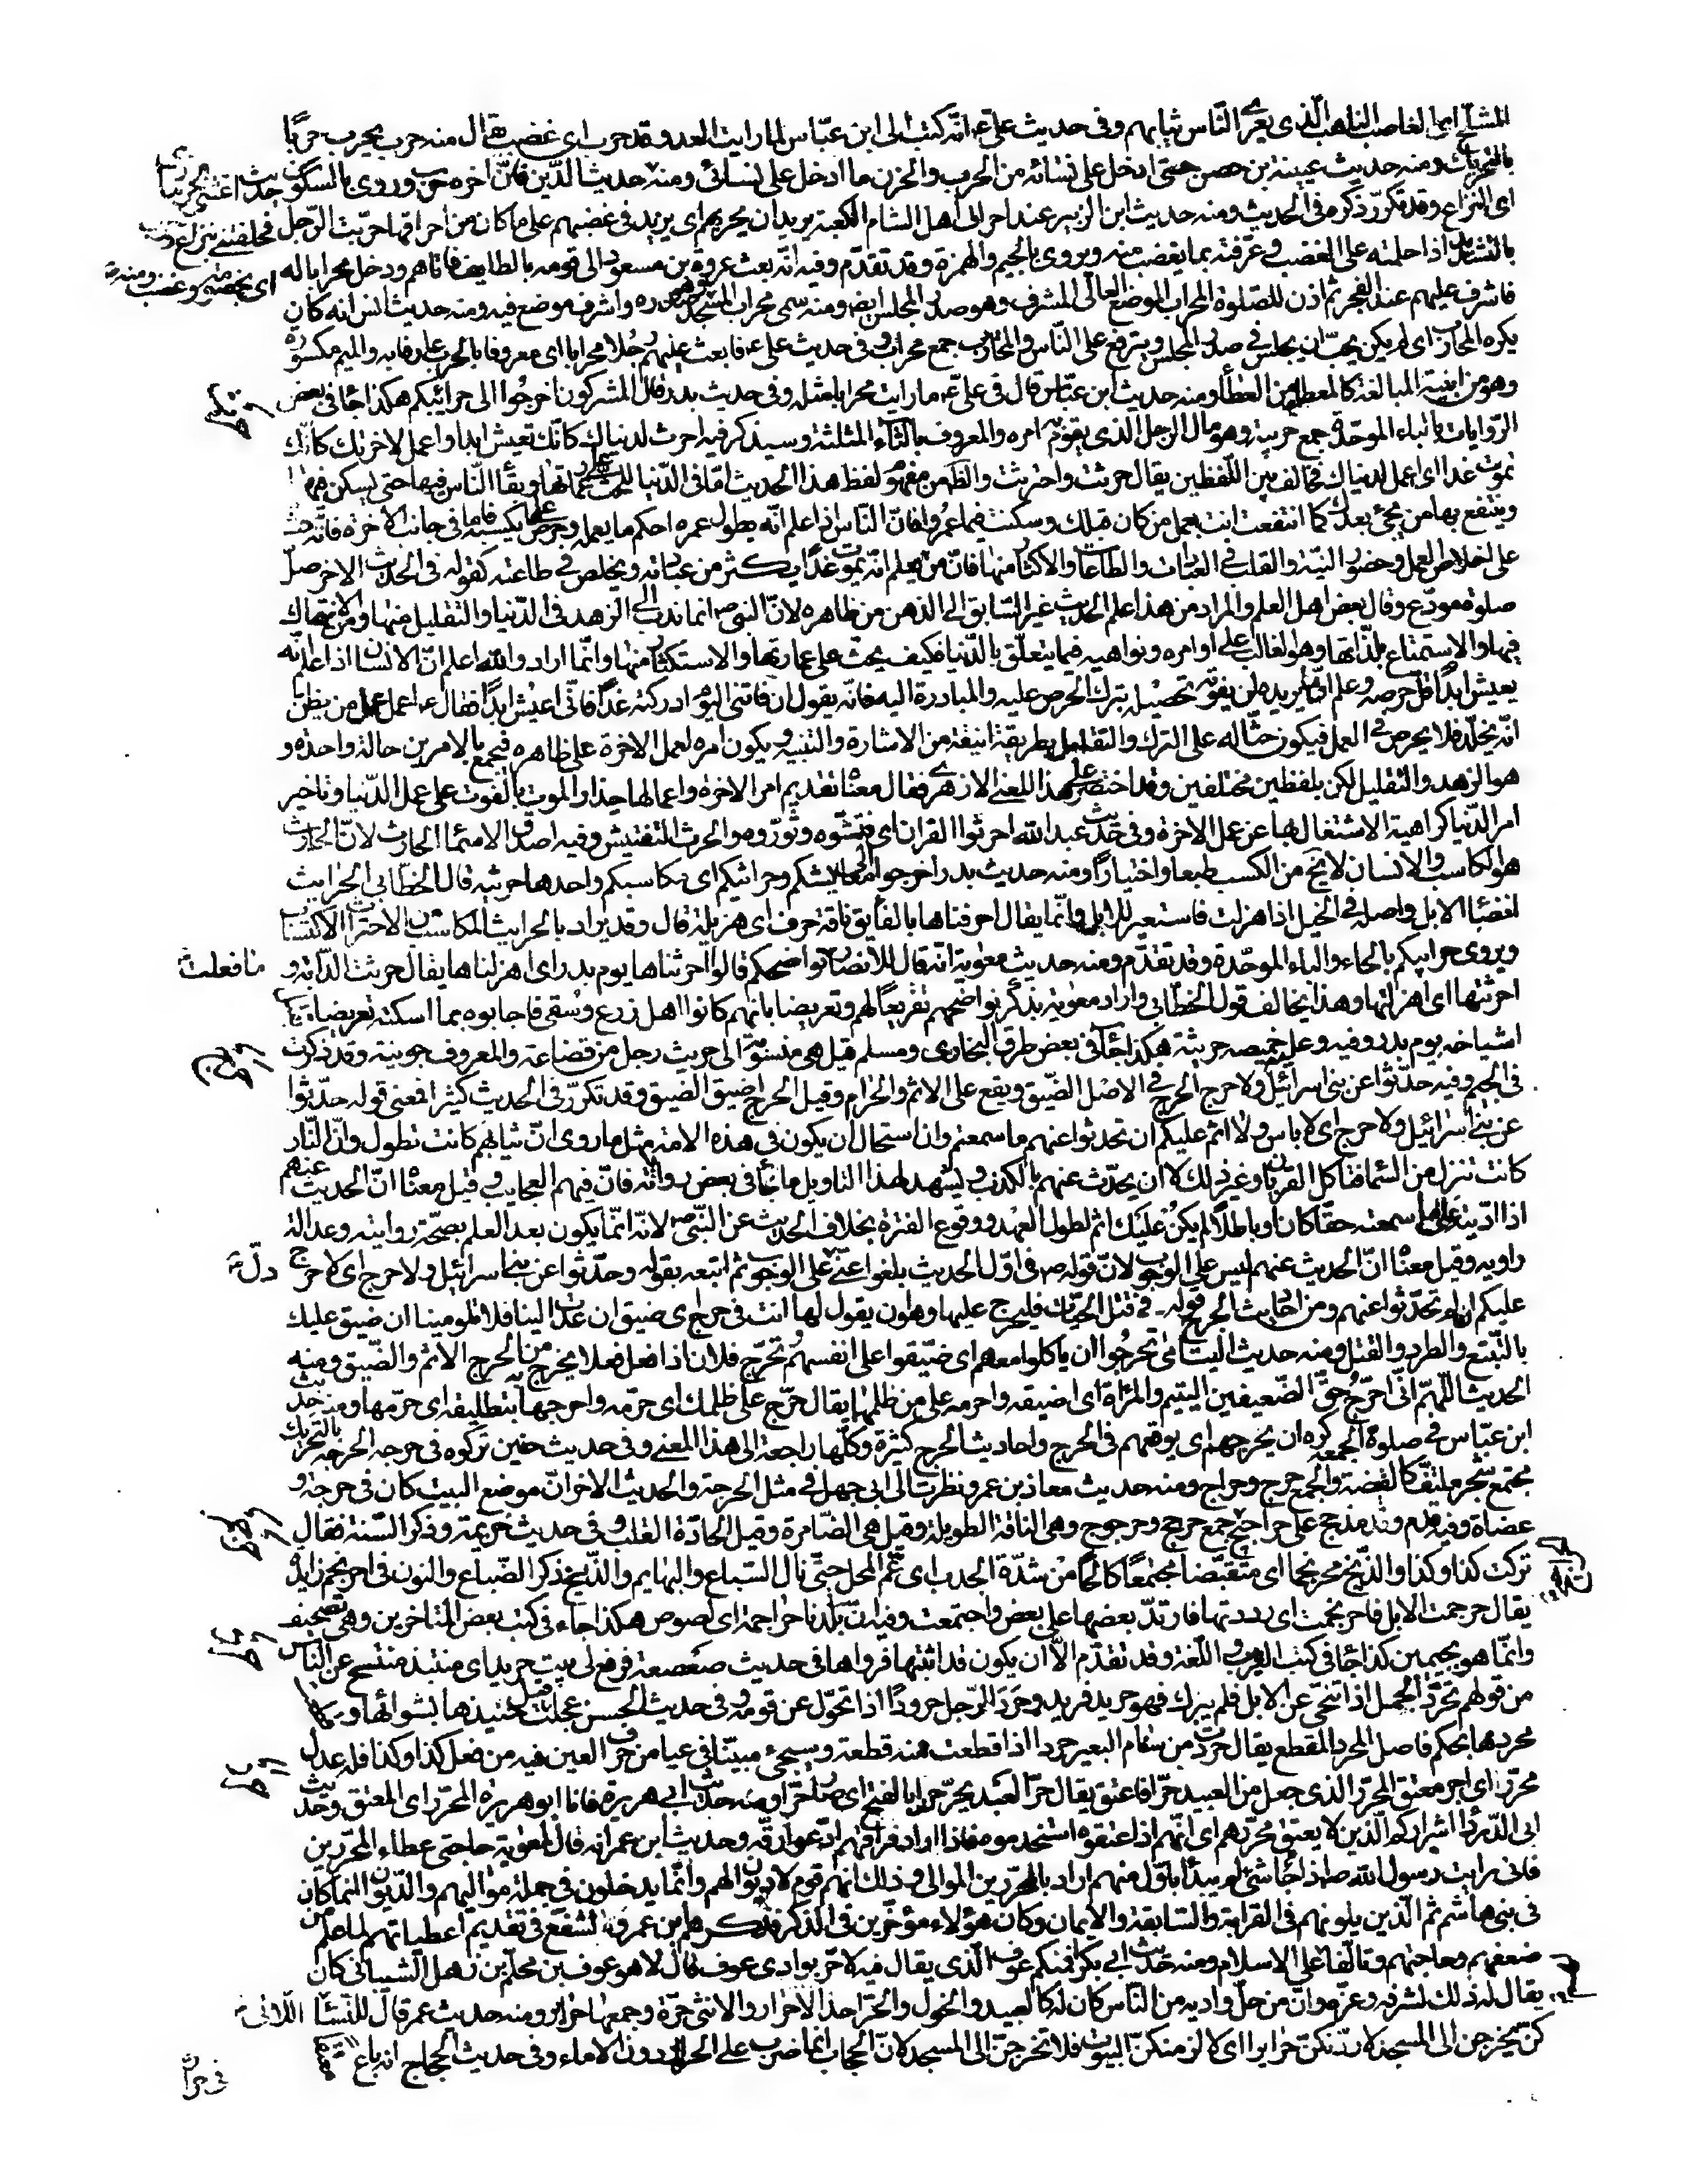 المشلّح اى الغاصب الناهب الّذى يعرّى النّاس ثيابهم وفى حديث علىّ ع انّه كتب الى ابن عبّاس لما رايت العدو قد حرب اى غضب يقال منه حرب يحرب حربًا
بالتحريك ومنه حديث عيينة بن حصن حتى ادخل على نسائه من الحرب والحزن ما ادخل على نسائى ومنه حديث الدّين فانّ اخره حرب وروى بالسكون
اى النزاع وقد تكرّر ذكره فى الحديث ومنه حديث ابن الزبير عند احراق اهل الشام الكعبة يريد ان يحربهم اى يزيد فى غضبهم على ما كان من احراقها حرّبت الرّجل
بالتشديد اذا حملته على الغضب وعرّفته بما يغضب منه ويروى بالجيم والهمزة وقد تقدّم وفيه انّه بعث عروة بن مسعود الى قومه بالطايف فاتاهم ودخل محرابا له
فاشرف عليهم عند الفجر ثم اذن للصّلوة المحراب الموضع العالى المشرف وهو صدر المجلس ايض ومنه سمى محراب المسجد وهو صدره واشرف موضع فيه ومنه حديث انس انه كان
يكره المحاريب اى لم يكن يحبّ ان يجلس فى صدر المجلس ويترفع على النّاس والمحاريب جمع محراب وفى حديث على ع فابعث عليهم رجلا محرابا اى معروفا بالحرب عارفا بها والميم مكسورة
وهو من ابنية المبالغة كالمعطاء من العطاء ومنه حديث ابن عبّاس قال فى علىّ ع ما رايت محرابا مثله وفى حديث بدر قال المشركون اخرجوا الى حرائبكم هكذا جاء فى بعض
الرّوايات بالباء الموحّدة جمع حريبة وهو مال الرجل الذى يقوم به امره والمعروف بالثاء المثلثة وسيذكر فيه احرث لدنياك كانّك تعيش ابدا واعمل لاخرتك كانّك
تموت غدا اى اعمل لدنياك فخالف بين اللّفظين يقال حرثت واحترثت والظاهر من مفهوم لفظ هذا الحديث امّا فى الدّنيا للحث على عمارتها وبقاء النّاس فيها حتى يسكن فيها
وينتفع بها من يجئ بعدك كما انتفعت انت بعمل من كان قبلك وسكنت فيما عمروا فانّ النّاس اذا علم انّه يطول عمره احكم ما يعمله وحرص على ما يكسبه فاما فى جانب الاخرة فانّه حث
على اخلاص العمل وحضور النيّة والقلب فى العبادات والطّاعات والاكثار منها فانّ من يعلم انّه يموت غدًا يكثر من عبادته ويخلص فى طاعته كقوله فى الحديث الاخر صلّ
صلوة مودّع وقال بعض اهل العلم والمراد من هذا الحديث غير السّابق الى الذهن من ظاهره لانّ النبىّ ص انما ندب الى الزهد فى الدّنيا والتقليل منها ومن الانهماك
فيها والاستمتاع بلذّاتها وهو الغالب على اوامره ونواهيه فيما يتعلّق بالدّنيا فكيف يحث على عمارتها والاستكثار منها وانّما اراد والله اعلم انّ الانسان اذا علم انّه
يعيش ابدًا قلّ حرصه وعلم انّ ما يريده لن يفوته تحصيله بترك الحرص عليه والمبادرة اليه فانّه يقول ان فاتنى اليوم ادركته غدًا فانّى اعيش ابدًا فقال ع اعمل عمل من يظنّ
انّه يخلّد فلا يحرص فى العمل فيكون حثّا له على الترك والتقليل بطريقة انيقة من الاشارة والتنبيه ويكون امره لعمل الاخرة على ظاهره فيجمع بالامرين حالة واحدة و
هو الزهد والتقليل لكن بلفظين مختلفين وقد اختصر على هذا المعنى الازهرى فقال معناه تقديم امر الاخرة واعمالها حذار الموت بالفوت على عمل الدّنيا وتاخير
امر الدّنيا كراهية الاشتغال بها عن عمل الاخرة وفى حديث عبد الله احرثوا القرآن اى فتّشوه وثوّروه والحرث التفتيش وفيه اصدق الاسماء الحارث لانّ الحارث
هو الكاسب والانسان لا يخ من الكسب طبعا واختيارًا ومنه حديث بدر اخرجوا الى معايشكم وحرائثكم اى مكاسبكم واحدها حريثة قال الخطابى الحرايث
انضاء الابل واصله فى الخيل اذا هزلت فاستعير للابل وانّما يقال احرفناها بالفا يق ناقة حرف اى هزيلة قال وقد يراد بالحرايث المكاسب من الاحتراث الاكتساب
ويروى حرايبكم بالحاء والباء الموحّدة وقد تقدّم ومنه حديث معوية انّه قال للانصار نواضحكم قالوا احرثناها يوم بدر اى اهزلناها يقال حرثت الدّابة و
ما فعلت
احرثتها اى اهزلتها وهذا يخالف قول الخطّابى واراد معوية بذكر نواضحهم تقريعًا لهم وتعريضا بانهم كانوا اهل زرع وسقى فاجابوه بما اسكته تعريضا بقتل
اشياخه يوم بدر وفيه وعليه خميصة حريثية هكذا جاء فى بعض طرق البخارى ومسلم قيل هى منسوبة الى حريث رجل من قضاعة والمعروف جونية وقد ذكرت
فى الجيم وفيه حدّثوا عن بنى اسرائيل ولا حرج الحرج فى الاصل الضّيق ويقع على الاثم والحرام وقيل الحرج اضيق الضيق وقد تكرّر فى الحديث كثيرا فمعنى قوله حدّثوا
عن بنى اسرائيل ولا حرج اى لا باس ولا اثم عليكم ان تحدثوا عنهم ما سمعتم وان استحال ان يكون فى هذه الامة مثل ما روى انّ ثيابهم كانت تطول وانّ النّار
كانت تنزل من السّماء فتاكل القربان وغير ذلك لا ان يحدّث عنهم بالكذب ويشهد لهذا التاويل ما جاء فى بعض رواياته فانّ فيهم العجايب وقيل معناه انّ الحديث عنهم
اذا ادّيته على ما سمعته حقّا كان او باطلًا لم يكن عليك اثم لطول العهد ووقوع الفترة بخلاف الحديث عن النّبىّ ص لانّه انّما يكون بعد العلم بصحّة روايته وعدالة
راويه وقيل معناه انّ الحديث عنهم ليس على الوجوب لانّ قوله ص فى اوّل الحديث بلغوا عنّى على الوجوب ثم اتبعه بقوله وحدّثوا عن بنى اسرائيل ولا حرج اى لا حرج
دلّ
عليكم ان لم تحدّثوا عنهم ومن احاديث الحرج قوله فى قتل الحيّات فليحرج عليها وهو ان يقول لها انت فى حرج اى ضيق ان عدت الينا فلا تلومينا ان ضيق عليك
بالتّتبّع والطرد والقتل ومنه حديث اليتامى تحرجوا ان ياكلوا معهم اى ضيّقوا على انفسهم تحرّج فلان اذا فعل فعلا يخرج به من الحرج الاثم والضّيق ومنه
الحديث اللّهمّ انّى احرّج حقّ الضّعيفين اليتيم والمراة اى اضيقه واحرمه على من ظلمها يقال حرّج علىّ ظلمك اى حرّمه واحرجها بتطليقة اى حرّمها ومنه حديث
ابن عبّاس فى صلوة الجمعة كره ان يحرجهم اى يوقعهم فى الحرج واحاديث الحرج كثيرة وكلّها راجعة الى هذا المعنى وفى حديث حنين تركوه فى حرجة الحرجة بالتحريك
مجتمع شجر ملتفّ كالغيضة والجمع حرج وحراج ومنه حديث معاذ بن عمرو نظرت الى ابى جهل فى مثل الحرجة والحديث الاخر انّ موضع البيت كان فى حرجة و
عضاة وفيه قدم وفد مذحج على حراجيج جمع حرجج وحرجوج وهى الناقة الطويلة وقيل هى الضّامرة وقيل الحادّة القلب وفى حديث خزيمة وذكر السّنة فقال
تركت كذا وكذا والذّيخ محرنجما اى متقبّضا مجتمعًا كالحا من شدّة الجدب اى عمّ المحل حتى نال السّباع والبهايم والذّيخ ذكر الضّباع والنون فى احرنجم زايدة
يقال حرجمت الابل فاحرنجمت اى رددتها فارتدّ بعضها على بعض واجتمعت وفيه انّ بلدنا حراجمة اى لصوص هكذا جاء فى كتب بعض المتاخرين وهو تصحيف
وانّما هو بجيمين كذا جاء فى كتب الغريب واللّغة وقد تقدّم الّا ان يكون قد اثبتها فرواها فى حديث صعصعة فرفع لى بيت حريد اى منتبذ متنحّ عن النّاس
من قولهم تحرّد الجمل اذا تنحّى عن الابل فلم يبرك فهو حريد فريد وحرد الرّجل حرودًا اذا تحوّل عن قومه وفى حديث الحسن عجلت قبل حنيذها بشوائها
محردها بحكم فاصل المحرد المقطع يقال حردت من سنام البعير حردا اذا قطعت منه قطعة وسيجئ مبيّنا فى عيا من حرف العين فيه من فعل كذا وكذا فله عدل
محرّر اى اجر معتق المحرّر الذى جعل من العبيد حرّا فاعتق يقال حرّ العبد يحرّ حرارا بالفتح اى صار حرّا ومنه حديث ابى هريرة فانا ابو هريرة المحرّر اى المعتق وحديث
ابى الدّرداء شراركم الّذين لا يعتق محرّرهم اى انّهم اذا اعتقوه استخدموه فاذا اراد فراقهم ادّعوا رقّه وحديث ابن عمر انّه قال لمعوية حاجتى عطاء المحرّرين
فانى رايت رسول الله ص اذا جاء شئ لم يبدأ باوّل منهم اراد بالمحرّرين الموالى وذلك انّهم قوم لا ديوان لهم وانّما يدخلون فى جملة مواليهم والدّيوان انّما كان
فى بنى هاشم ثم الّذين يلونهم فى القرابة والسّابقة والايمان وكان هؤلاء مؤخّرين فى الذكر فذكرهم ابن عمر وتشفّع فى تقديم اعطياتهم لما علم من
ضعفهم وحاجتهم وتالّفا على الاسلام ومنه حديث ابى بكر افمنكم عوف الّذى يقال فيه لا حرّ بوادى عوف قال لا هو عوف بن محلّم بن ذهل الشّيبانى كان
يقال له ذلك لشرفه وعزّه وانّ من حلّ واديه من النّاس كان له كالعبيد والخول والحرّ احد الاحرار والانثى حرّة وجمعها حراير ومنه حديث عمر قال للنّساء اللّاتى
كنّ يخرجن الى المسجد لاردّنّكنّ حرايرا اى لالزمنكنّ البيوت فلا تخرجن الى المسجد لانّ الحجاب انما ضرب على الحراير دون الاماء وفى حديث الحجاج انه باع